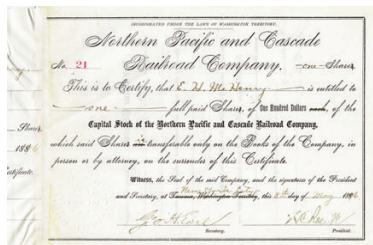 INCORPORATED UNDER THE LAWS OF WASHINGTON TERRITORY.
Northern Pacific and Cascade
No. 21 Railroad Company. one Share
This is to Certify, that E. H. McHenry is entitled to
one full paid Shares, of One Hundred Dollars each, of the
Capital Stock of the Northern Pacific and Cascade Railroad Company,
which said Shares is transferable only on the Books of the Company, in
person or by attorney, on the surrender of this Certificate.
Witness, the Seal of the said Company, and the signatures of the President
New York City
and Secretary, at Tacoma, Washington Territory, this 8th day of May 1896
Secretary. President.
Shares
1896
Certificate.